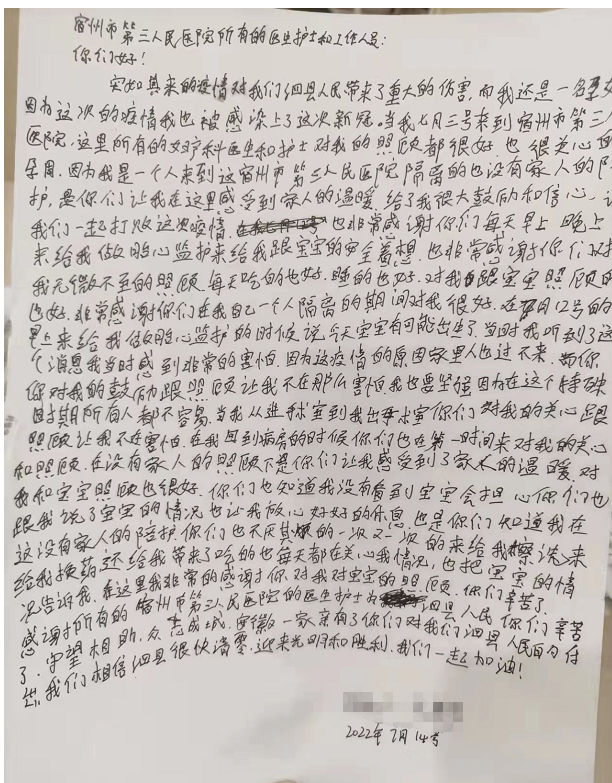 宿州市第三人民医院所有的医生护士和工作人员:
你们好!
突如其来的疫情对我们泗县人民带来了重大的伤害,而我还是一名孕妇
因为这次的疫情我也被感染上了这次新冠.当我七月三号来到宿州市第三人
医院,这里所有的妇产科医生和护士对我的照顾都很好也很关心
因为我是一个人来到这宿州市第三人民医院隔离的也没有家人的陪
护,是你们让我在这里感受到家人的温暖,给了我很大鼓励和信心,让
我们一起打败这次疫情.也非常感谢你们每天早上晚上
来给我做胎心监护来给我跟宝宝的安全着想.也非常感谢你们对
我无微不至的照顾.每天吃的也好.睡的也好.对我跟宝宝照顾的
也好.非常感谢你们在我自己一个人隔离的期间对我很好.在7月12号的
早上来给我做胎心监护的时候说今天宝宝有可能出生了.当时我听到了这
个消息我当时感到非常的害怕.因为这疫情的原因家里人也过不来.而你
你对我的鼓励跟照顾让我不在那么害怕.我也要坚强因为在这个特殊
时期所有人都不容易.当我从进手术室到我出手术室你们对我的关心跟
照顾让我不在害怕.在我回到病房的时候你们也在第一时间来对我的关心
和照顾.在没有家人的照顾下是你们让我感受到了家人的温暖对
我和宝宝照顾也很好.你们也知道我没有看到宝宝会担心你们也
跟我说了宝宝的情况也让我放心好好的休息.也是你们知道我在
这没有家人的陪护.你们也不厌其烦的一次又一次的来给我擦洗来
给我换药.还给我带来了吃的也每天都在关心我情况,也把宝宝的情
况告诉我.在这里我非常的感谢你.对我对宝宝的照顾.你们辛苦了
感谢所有的宿州市第三人民医院的医生护士为泗县人民你们辛苦
了.守望相助.众志成城.安徽一家亲有了你们对我们泗县人民的付
出.我们相信泗县很快清零.迎来光明和胜利.我们一起加油!
2022年7月14号